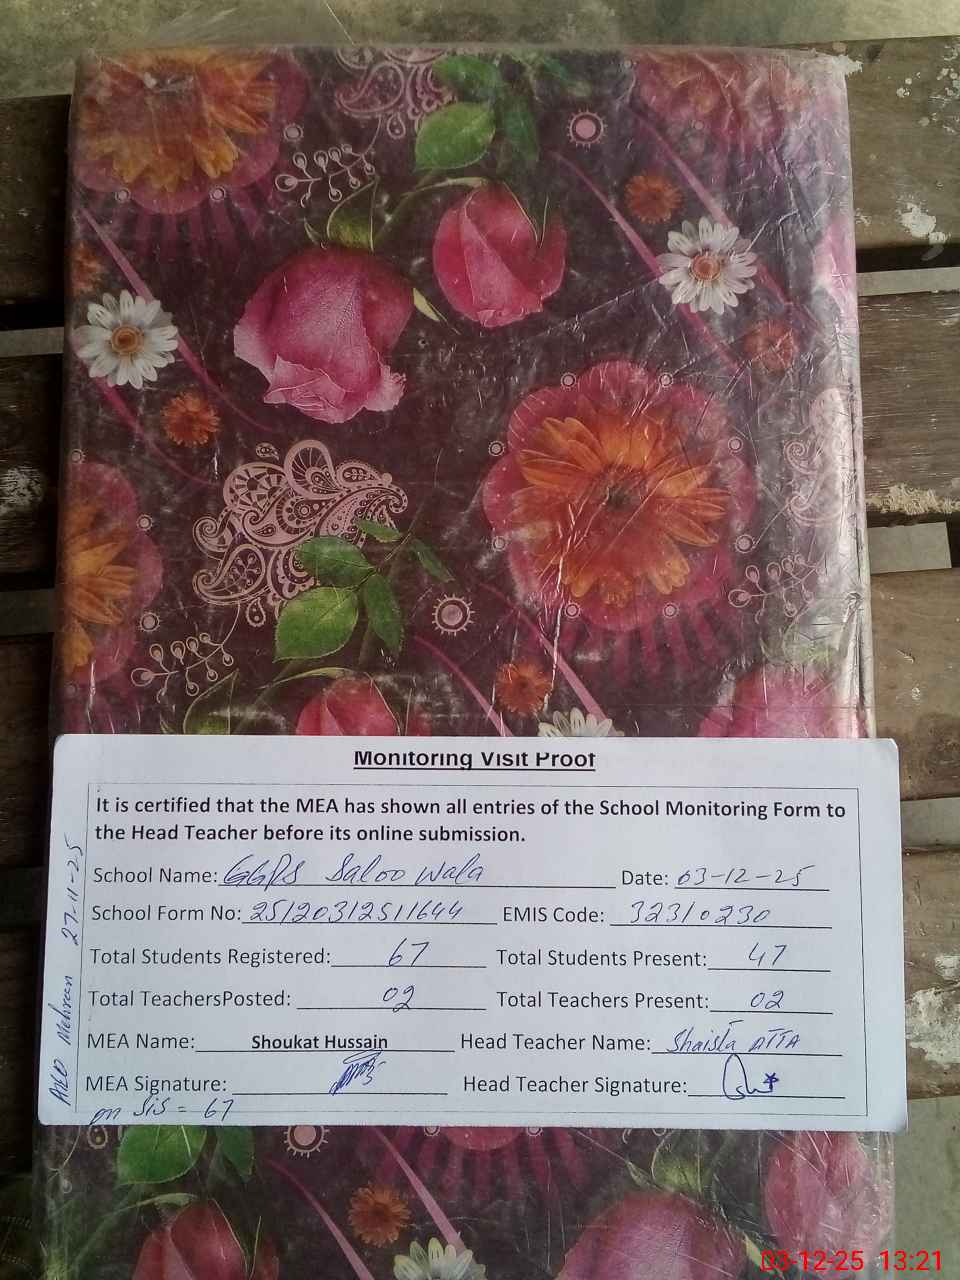 Monitoring Visit Proof
It is certified that the MEA has shown all entries of the School Monitoring Form to
the Head Teacher before its online submission.
School Name: GGPS Saloo Wala Date: 03-12-25
School Form No: 25120312511644 EMIS Code: 32310230
Total Students Registered: 67 Total Students Present: 47
Total TeachersPosted: 02 Total Teachers Present: 02
MEA Name: Shoukat Hussain Head Teacher Name: Shaista ATTA
MEA Signature: Head Teacher Signature:
on SiS = 67
Mehreen 27-11-25
03-12-25 13:21